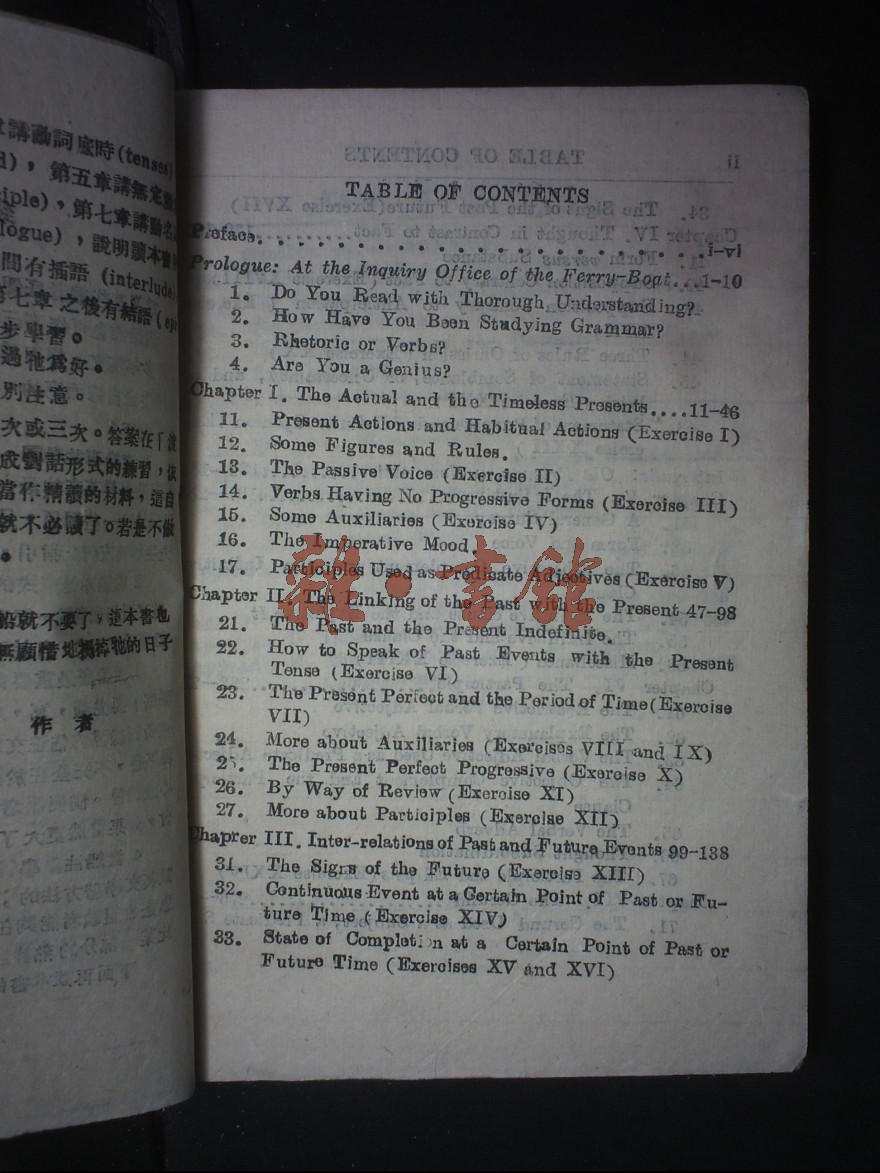 章講動詞底時(tenses)
，第五章講無定
ciple)，第七章講動名
logue)，說明讀本書
間有插語 (interlude)
第七章 之後有結語 (ep
步學習。
過牠爲好。
別注意。
次或三次。答案在「
成對話形式的練習，
當作精讀的材料，這自
就不必讀了。若是不做
。
船就不要了，這本書也
無顧惜地 掉牠的日子
作 者
TABLE OF CONTENTS
Preface. . . . . . . . . . . . . . . . . . i-vi
Prologue: At the Inquiry Office of the Ferry-Boat...1-10
1. Do You Read with Thorough Understanding?
2. How Have You Been Studying Grammar?
3. Rhetoric or Verbs?
4. Are You a Genius?
Chapter I. The Actual and the Timeless Presents....11-46
11. Present Actions and Habitual Actions (Exercise I)
12. Some Figures and Rules.
13. The Passive Voice (Exercise II)
14. Verbs Having No Progressive Forms (Exercise III)
15. Some Auxiliaries (Exercise IV)
16. The Imperative Mood.
17. Participles Used as Predicate Adjectives (Exercise V)
Chapter II. The Linking of the Past with the Present 47-98
21. The Past and the Present Indefinite.
22. How to Speak of Past Events with the Present
Tense (Exercise VI)
23. The Present Perfect and the Period of Time(Exercise
VII)
24. More about Auxiliaries (Exercises VIII and IX)
25. The Present Perfect Progressive (Exercise X)
26. By Way of Review (Exercise XI)
27. More about Participles (Exercise XII)
Chaprer III. Inter-relations of Past and Future Events 99-138
31. The Signs of the Future (Exercise XIII)
32. Continuous Event at a Certain Point of Past or Fu-
ture Time (Exercise XIV)
33. State of Completion at a Certain Point of Past or
Future Time (Exercises XV and XVI)
雜·書館